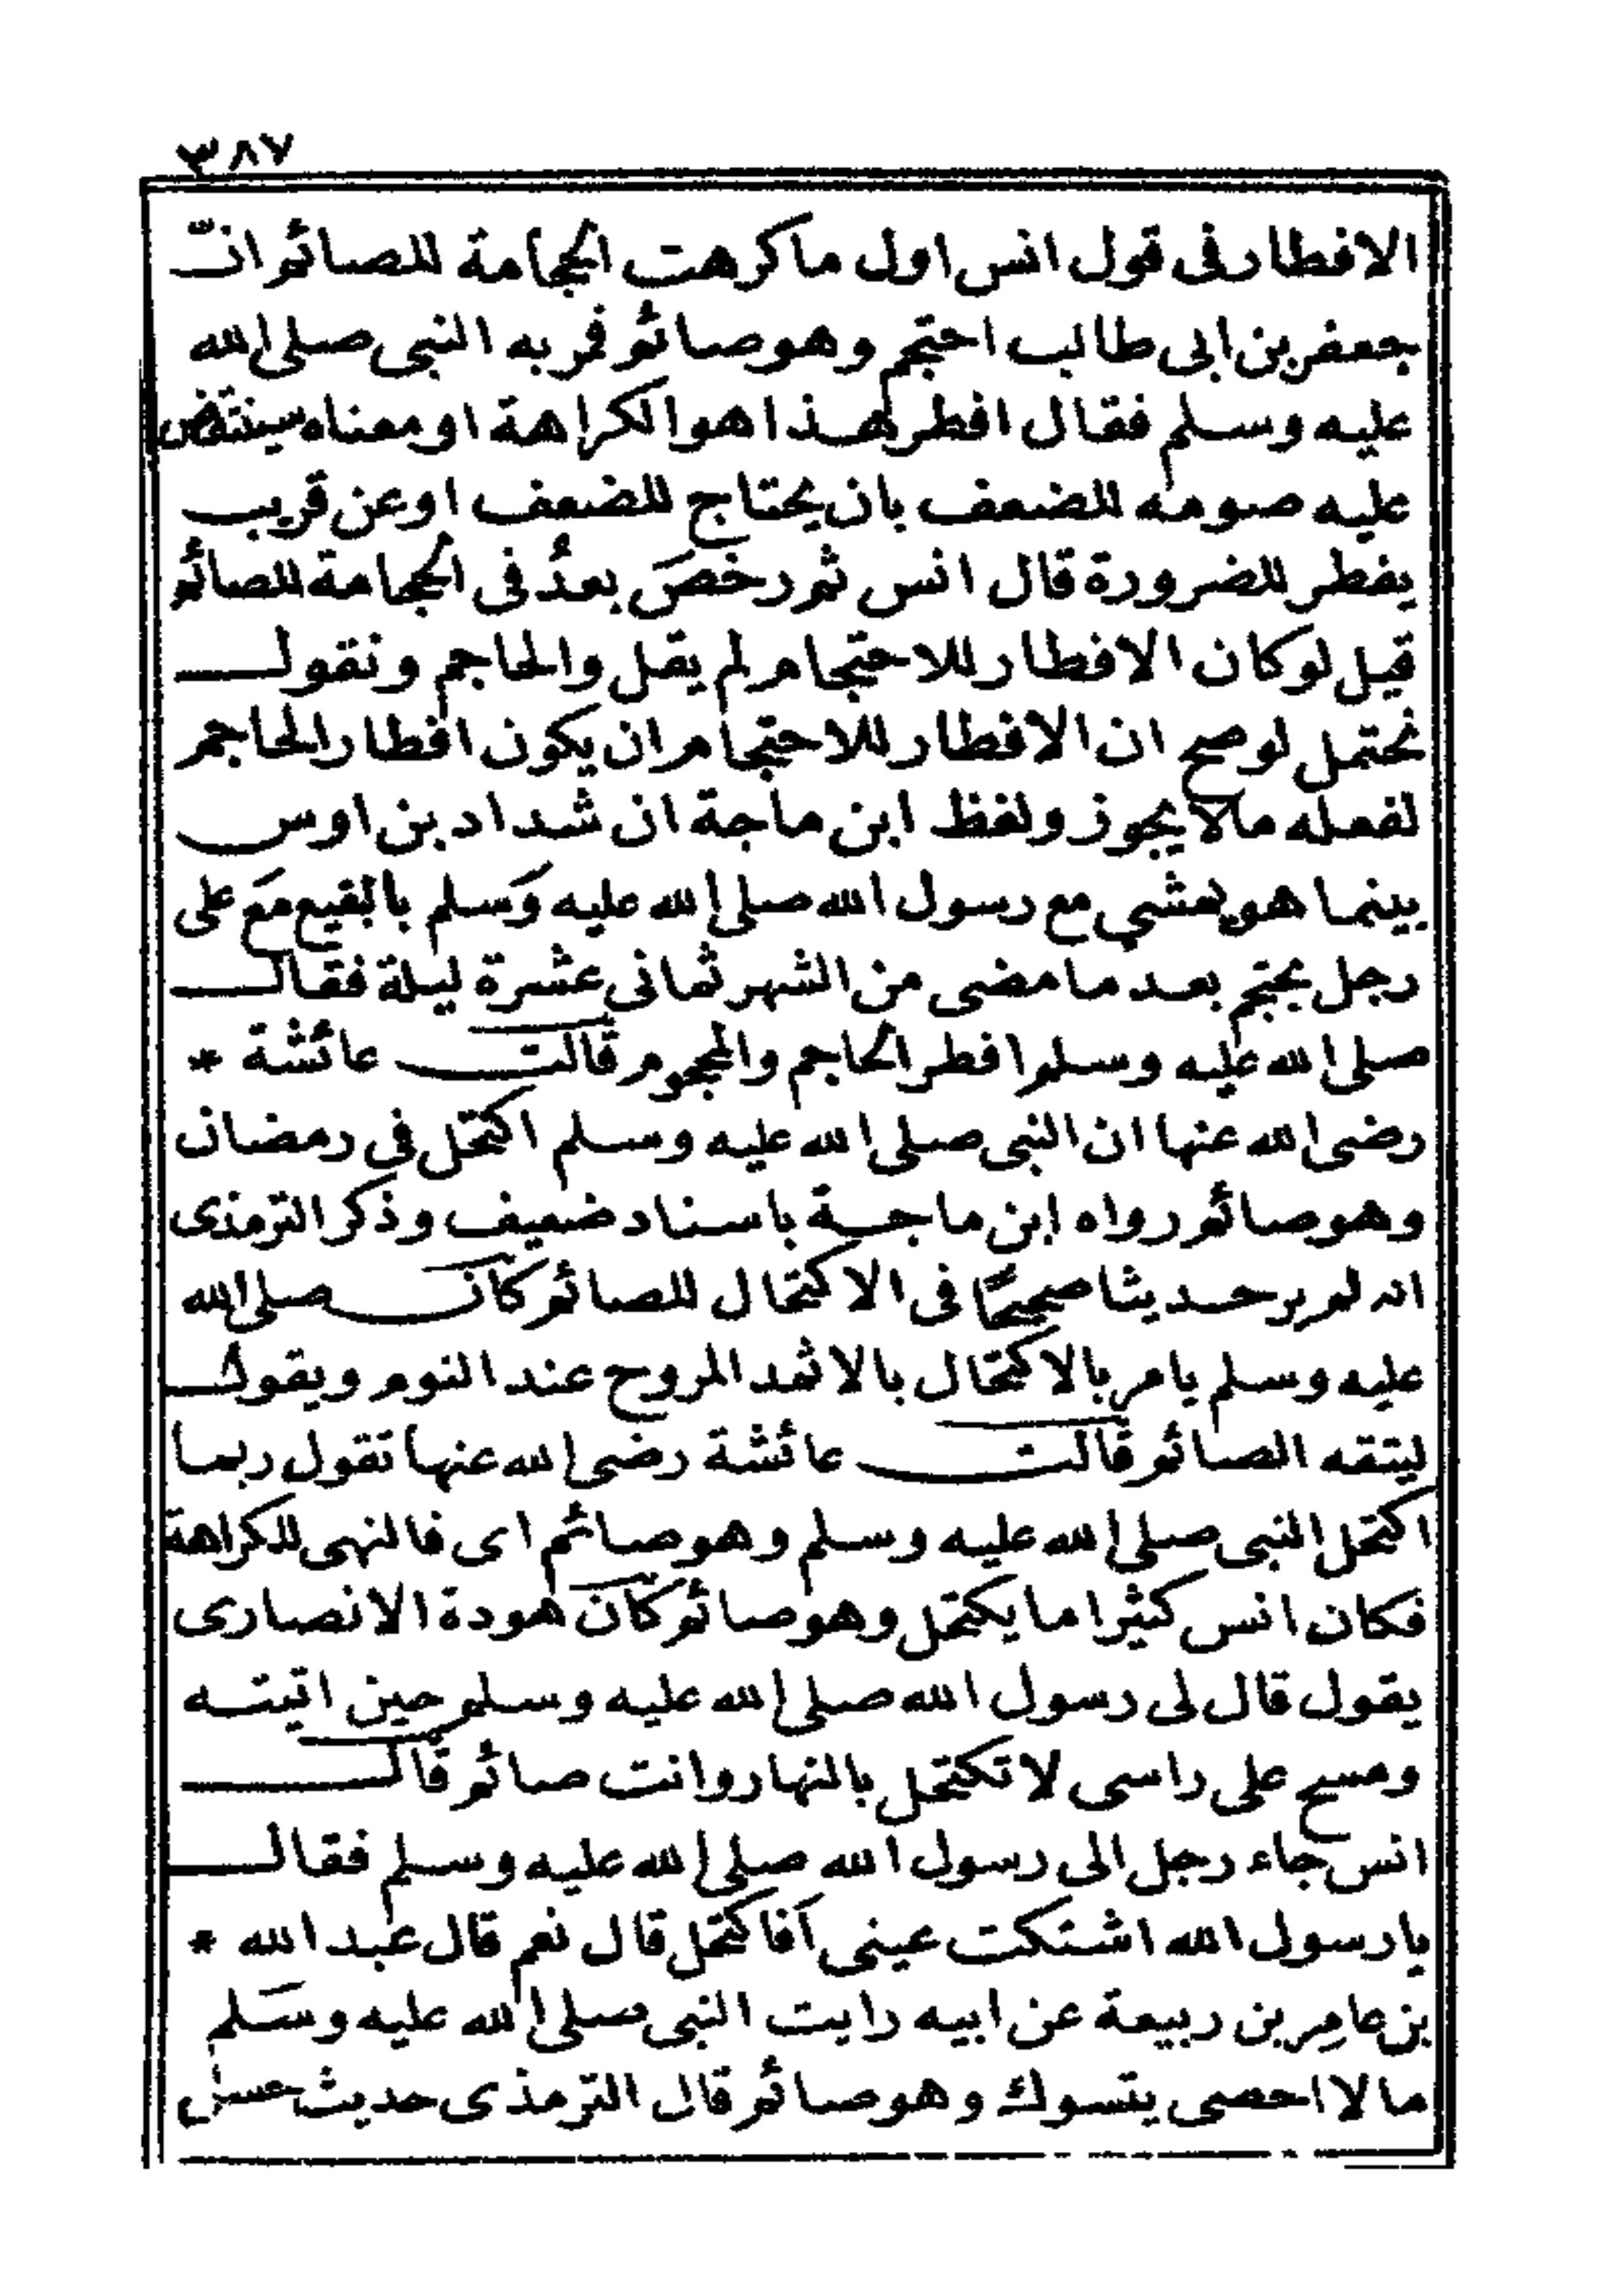 ٣٨٧
الافطار فى قول انس اول ما كرهت الحجامة للصائم انّ
جعفر بن ابى طالب احتجم وهو صائم فمر به النبى صلى الله
عليه وسلم فقال افطر هذا هو الكراهة او معناه سينتقض
عليه صومه للضعف بان يحتاج للضعف او عن قريب
يفطر للضرورة قال انس ثم رخصَ بعدُ فى الحجامة للصائم
قيل لو كان الافطار للاحتجام لم يقل والحاجم ونقول
نحتمل لو صح ان الافطار للاحتجام ان يكون افطار الحاجم
لفعله ما لا يجوز ولفظ ابن ماجة ان شداد بن اوس
بينما هو يمشى مع رسول الله صلى الله عليه وسلم بالبقيع مَع على
رجل يحتجم بعد ما مضى من الشهر ثمانى عشرة ليلة فقال
صلى الله عليه وسلم افطر الحاجم والمحجوم قالت عائشة *
رضى الله عنها ان النبى صلى الله عليه وسلم اكتحل فى رمضان
وهو صائم رواه ابن ماجة باسناد ضعيف وذكر الترمذى
انه لم ير حديثا صحيحًا فى الاكتحال للصائم كان صلى الله
عليه وسلم يامر بالاكتحال بالاثمد المروح عند النوم ويقول
ليتقه الصائم قالت عائشة رضى الله عنها تقول ربما
اكتحل النبى صلى الله عليه وسلم وهو صائم اى فالنهى للكراهة
فكان انس كثيرا ما يكتحل وهو صائم كان هودة الانصارى
يقول قال لى رسول الله صلى الله عليه وسلم حين اتيته
ومسح على راسى لا تكتحل بالنهار وانت صائم قال
انس جاء رجل الى رسول الله صلى الله عليه وسلم فقال
يا رسول الله اشتكت عينى اَفاكتحل قال نعم قال عبد الله *
بن عامِر بن ربيعة عن ابيه رايت النبى صلى الله عليه وسَلم
ما لا احصى يتسوك وهو صائم قال الترمذى حديث حسن